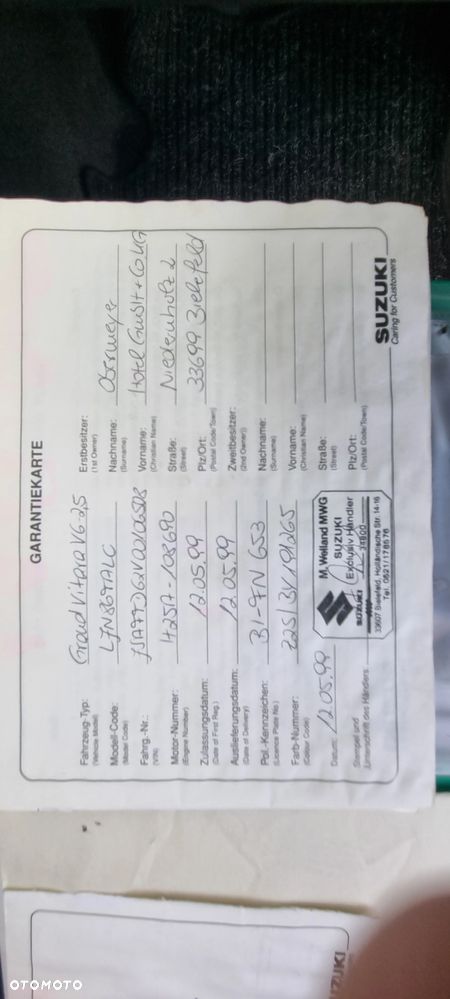 GARANTIEKARTE
Fahrzeug-Typ: Grand Vitara V6 2,5
(Vehicle Model)
Modell-Code:
(Model Code)
Fahrg.-Nr.:
(VIN)
Motor-Nummer: H25A-108690
(Engine Number)
Zulassungsdatum: 12.05.99
(Date of First Reg.)
Auslieferungsdatum: 12.05.99
(Date of Delivery)
Pol.-Kennzeichen: BI-FN 653
(Licence Plate No.)
Farb-Nummer:
(Colour Code)
Datum: 12.05.99
Stempel und
Unterschrift des Händlers
M. Weiland MWG
SUZUKI
Exclusiv Händler
SUZUKI
33607 Bielefeld, Holländische Str. 14-16
Tel. 0521/178576
Erstbesitzer:
(1st Owner)
Nachname: Obermeyer
(Surname)
Vorname: Hotel GmbH + Co KG
(Christian Name)
Straße: Niedernholz 2
(Street)
Plz/Ort: 33699 Bielefeld
(Postal Code/Town)
Zweitbesitzer:
(2nd Owner)
Nachname:
(Surname)
Vorname:
(Christian Name)
Straße:
(Street)
Plz/Ort:
(Postal Code/Town)
SUZUKI
Caring for Customers
SUZUKI
OTOMOTO